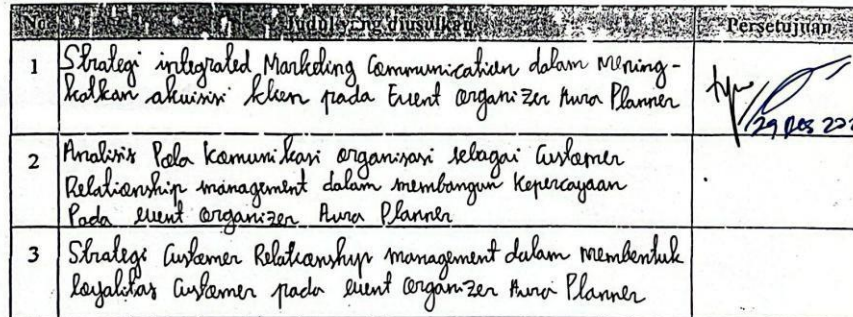 No Judul yang diusulkan Persetujuan
1 Strategi integrated Marketing Communication dalam Mening-
katkan akuisisi klien pada Event organizer Aura Planner
29 Des
2 Analisis Pola Komunikasi organisasi sebagai Customer
Relationship management dalam membangun Kepercayaan
Pada event organizer Aura Planner
3 Strategi Customer Relationship management dalam membentuk
loyalitas Customer pada event organizer Aura Planner